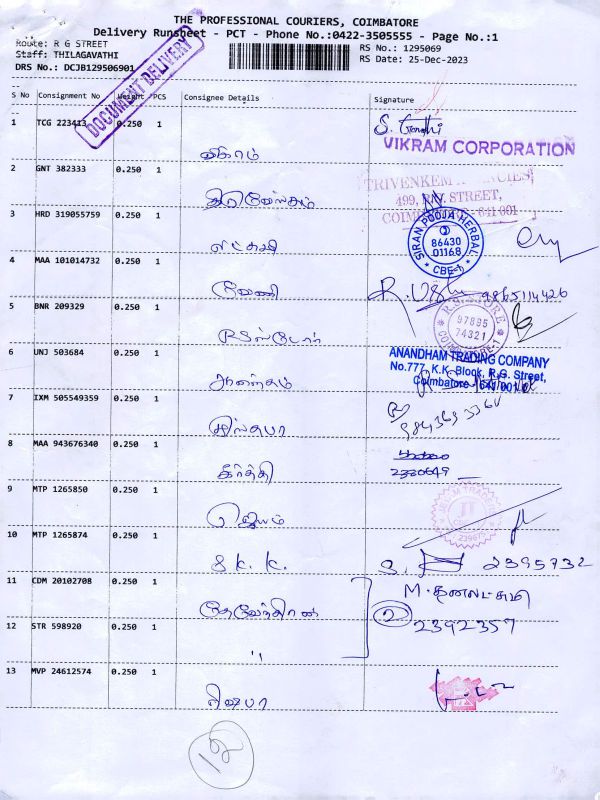 THE PROFESSIONAL COURIERS, COIMBATORE
Delivery Runsheet - PCT - Phone No.:0422-3505555 - Page No.:1
Route: R G STREET
Staff: THILAGAVATHI
DRS No.: DCJB129506901
RS No.: 1295069
RS Date: 25-Dec-2023
DOCUMENT DELIVERY
S No Consignment No Weight PCS Consignee Details Signature
1 TCG 223413 0.250 1 விக்ரம் S. Gandhi
VIKRAM CORPORATION
2 GNT 382333 0.250 1
499, R.G. STREET,
COIMBATORE - 641 001
3 HRD 319055759 0.250 1
SIRAN POOJA HERBAL
86430
01168
CBE-1
4 MAA 101014732 0.250 1 வேணி R. Usha 9865114426
5 BNR 209329 0.250 1 RS ஸ்டோர்
R.S. STORE
97895
74321
COIMBATORE-1
6 UNJ 503684 0.250 1 ஆனந்தம்
ANANDHAM TRADING COMPANY
No.777, K.K. Block, R.G. Street,
Coimbatore - 641 001.
7 IXM 505549359 0.250 1
8 MAA 943676340 0.250 1 கீர்த்தி
2380649
9 MTP 1265850 0.250 1 ஜெயம்
10 MTP 1265874 0.250 1 S K. K. 2395732
11 CDM 20102708 0.250 1 தேவேந்திரன் M. தனலட்சுமி
2
2392357
12 STR 598920 0.250 1 "
13 MVP 24612574 0.250 1 ரிஷபா